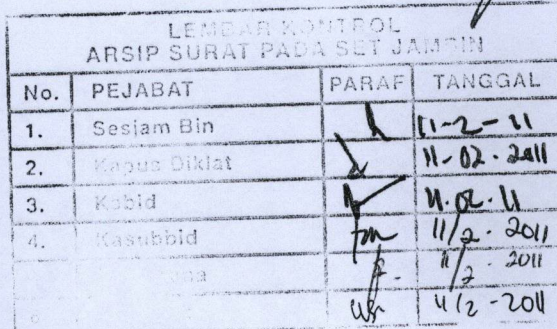 LEMBAR KONTROL
ARSIP SURAT PADA SET JAMBIN
No. PEJABAT PARAF TANGGAL
1. Sesjam Bin 11-2-11
2. Kapus Diklat 11-02-2011
3. Kabid 11.02.11
4. Kasubbid 11/2-2011
11/2-2011
11/2-2011